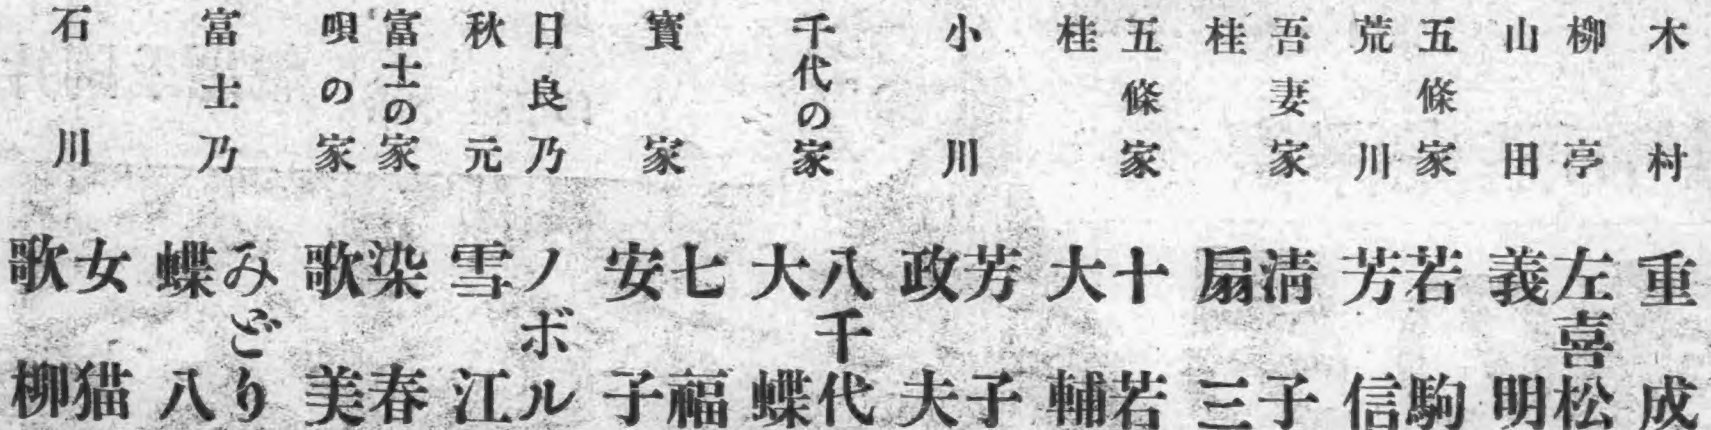 木村 重成
柳亭 左喜松
山田 義明
五條家 若駒
荒川 芳信
吾妻家 清子
桂 扇三
五條家 十若
桂 大輔
小川 芳子
政夫
千代の家 八千代
大蝶
寳家 七福
安子
日良乃 ノボル
秋元 雪江
富士の家 染春
唄の家 歌美
富士乃 みどり
蝶八
石川 女猫
歌柳